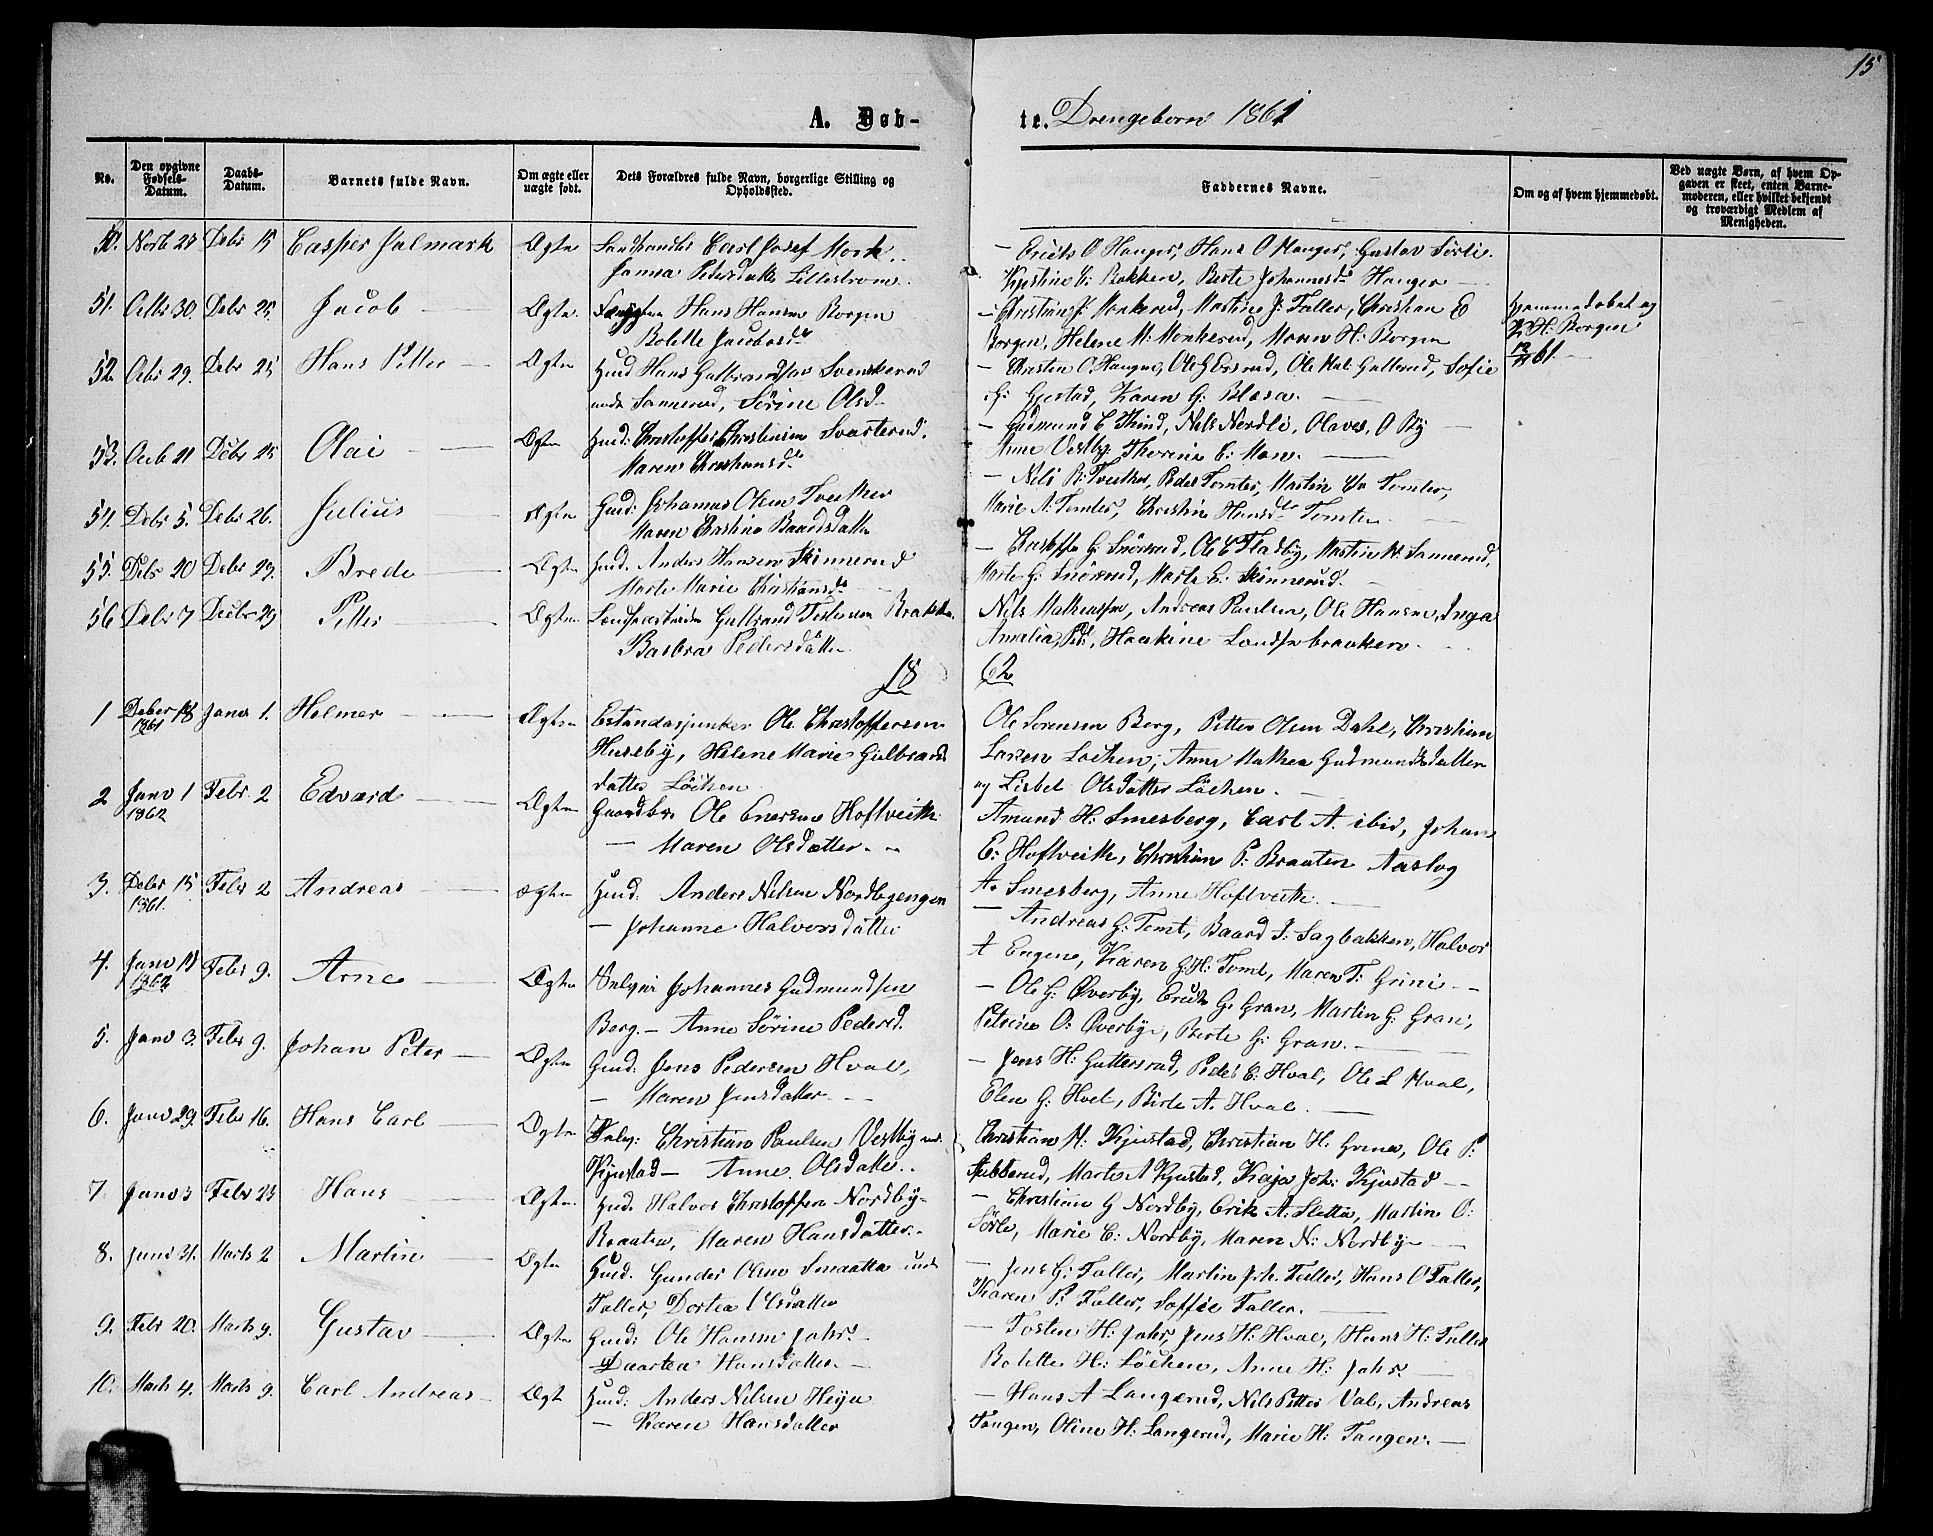 15
A. Døb-
te. Drengebørn 1861
No.
Den opgivne Fødsels-Datum.
Daabs-Datum.
Barnets fulde Navn.
Om ægte eller uægte født.
Dets Forældres fulde Navn, borgerlige Stilling og Opholdssted.
Faddernes Navne.
Om og af hvem hjemmedøbt.
Ved uægte Børn, af hvem Opgaven er skeet, enten Barnemoderen, eller hvilket bekjendt og troværdigt Medlem af Menigheden.
50. Debr 15 Casper Ægte Carl Josef Mork
Pedersdatter Lillestrøm
O Hanger, Hans O Hanger, Gustav Sørli.
Bakken, Berte Johannesd. Hanger
51. 30. Debr 25. Jacob Ægte Hans Hansen Borgen
Bolette Jacobsd.
Christian Martine J: Faller, Christian E
Borgen, Helene M: Monkerud, Maren H: Borgen
Hjemmedøbt og
H: Borgen
61.
52. 29. Debr 25 Hans Petter Ægte Huusd Hans Gulbrandsen Svenkerud
Sannerud, Sørine Olsd.
Christen O Haugen, Ole Gullerud, Sofie
G: Gjestad, Karen G: Blæsa.
53. 21 Debr 25 Olai Ægte Huusd: Christoffer Christensen Svarterud.
Maren Christiansd.
Gudmund E Nils Nordli, Olaves, O By
Anne Vestby, Thorine E: Moen.
54. Debr 5. Debr 26. Julius Ægte Johannes Olsen Tveither
Maren Christine Baardsdatter
Nils B: Tveither, Peder Tomter, Martin Tomter,
Marie A: Tomter, Christine Hansd. Tomter
55. Debr 20 Debr 29. Brede Ægte Huusd. Anders Hansen Skinnerud
Marte Marie Christiansd.
G: Snørerud, Ole E Fladby, Martin Sannerud,
Marte G: Snørerud, Marte E: Skinnerud.
56 Debr 7 Decbr 29 Petter Ægte Gulbrand Braaten
Barbra Pedersdatter
Nils Mathiassen, Andreas Paulsen, Ole Hansen, Inga
Amalia, Haakine
18
62
1 Decbr 18 1861 Janr 1. Helmer Ægte Ole Christoffersen
Huseby, Helene Marie Gulbrands
datter Löchen
Ole Sørensen Berg, Petter Olsen Dahl, Christian
Larsen Løchen, Anne Mathea Gudmundsdatter
og Lisbet Olsdatter Löchen.
2 Janr 1 1862 Febr 2 Edvard Ægte Gaardbr. Ole Enersen Hoftveith
Maren Olsdatter.
Amund H: Smesberg, Carl A. ibid, Johan
E: Hoftveith, Christian P: Braaten Aaslog
A. Smesberg, Anne Hoftveith.
3. Debr 15 1861. Febr 2 Andreas ægte Huusd. Anders Nilsen Nordbyengen
Johanne Halvorsdatter
Andreas G: Tomt, Baard J: Sagbakken, Halvor
A Engene, Karen G. H: Tomt, Maren T: Grini
4. Janr 18 1862 Febr 9. Arne Ægte Johannes Gudmundsen
Berg. Anne Sørine Pedersd.
Ole G: Øverby, Erick G. Gran, Martin G: Gran,
Petrine O: Øverby, Berte G: Gran.
5. Janr 3. Febr 9. Johan Peter Ægte Jens Pedersen Hval,
Maren Jensdatter.
Jens H: Guttersrud, Peder E: Hval, Ole L Hval,
Elen G: Hvel, Birte A. Hval.
6. Janr 29. Febr 16. Hans Carl Ægte Christian Paulsen Vestby
Kjustad Anne Olsdatter.
Christian M: Kjustad, Christian H: Ole P:
Marte A Kjustad, Kaja Joh: Kjustad
7. Janr 3 Febr 23 Hans Ægte Halvor Christoffersen Nordby-
Braaten, Maren Hansdatter.
Christian G Nordby, Erik A. Sletta, Martin O:
Sørli, Marie C: Nordby, Maren N: Nordby
8. 31. Marts 2 Martin Ægte Huusd. Gunder Olsen Smaatta
Faller, Dortea Olsdatter
Jens G: Faller, Martin Joh. Faller, Hans O Faller,
Karen P: Faller, Soffie Faller.
9. Febr 20. Marts 9. Gustav Ægte Ole Hansen Jahr.
Daartea Hansdatter.
Tosten H: Jahr, Jens H: Hval, Hans H: Faller
Bolette H: Löchen, Anne H: Jahr
10. Marts 4. Marts 9. Carl Andreas Ægt Huusd: Anders Nilsen Heija
Karen Hansdatter
Hans A Langerud, Nils Petter Val, Andreas
Tangen, Oline H: Langerud, Marie H: Tangen.